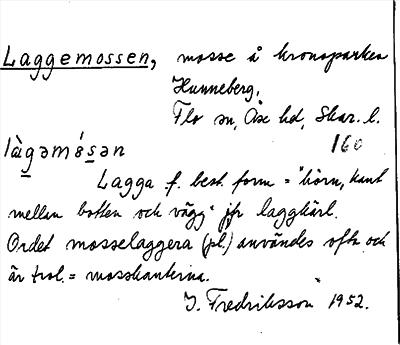 Laggemossen, mosse å kronoparken
Hunneberg.
Flo sn, Åse hd, Skar. l.
160
làgəmósən
Lagga f. best. form = "hörn, kant
mellan botten och vägg" jfr laggkärl.
Ordet mosselaggera (pl.) användes ofta och
är trol. = mosskanterna.
J. Fredriksson 1952.